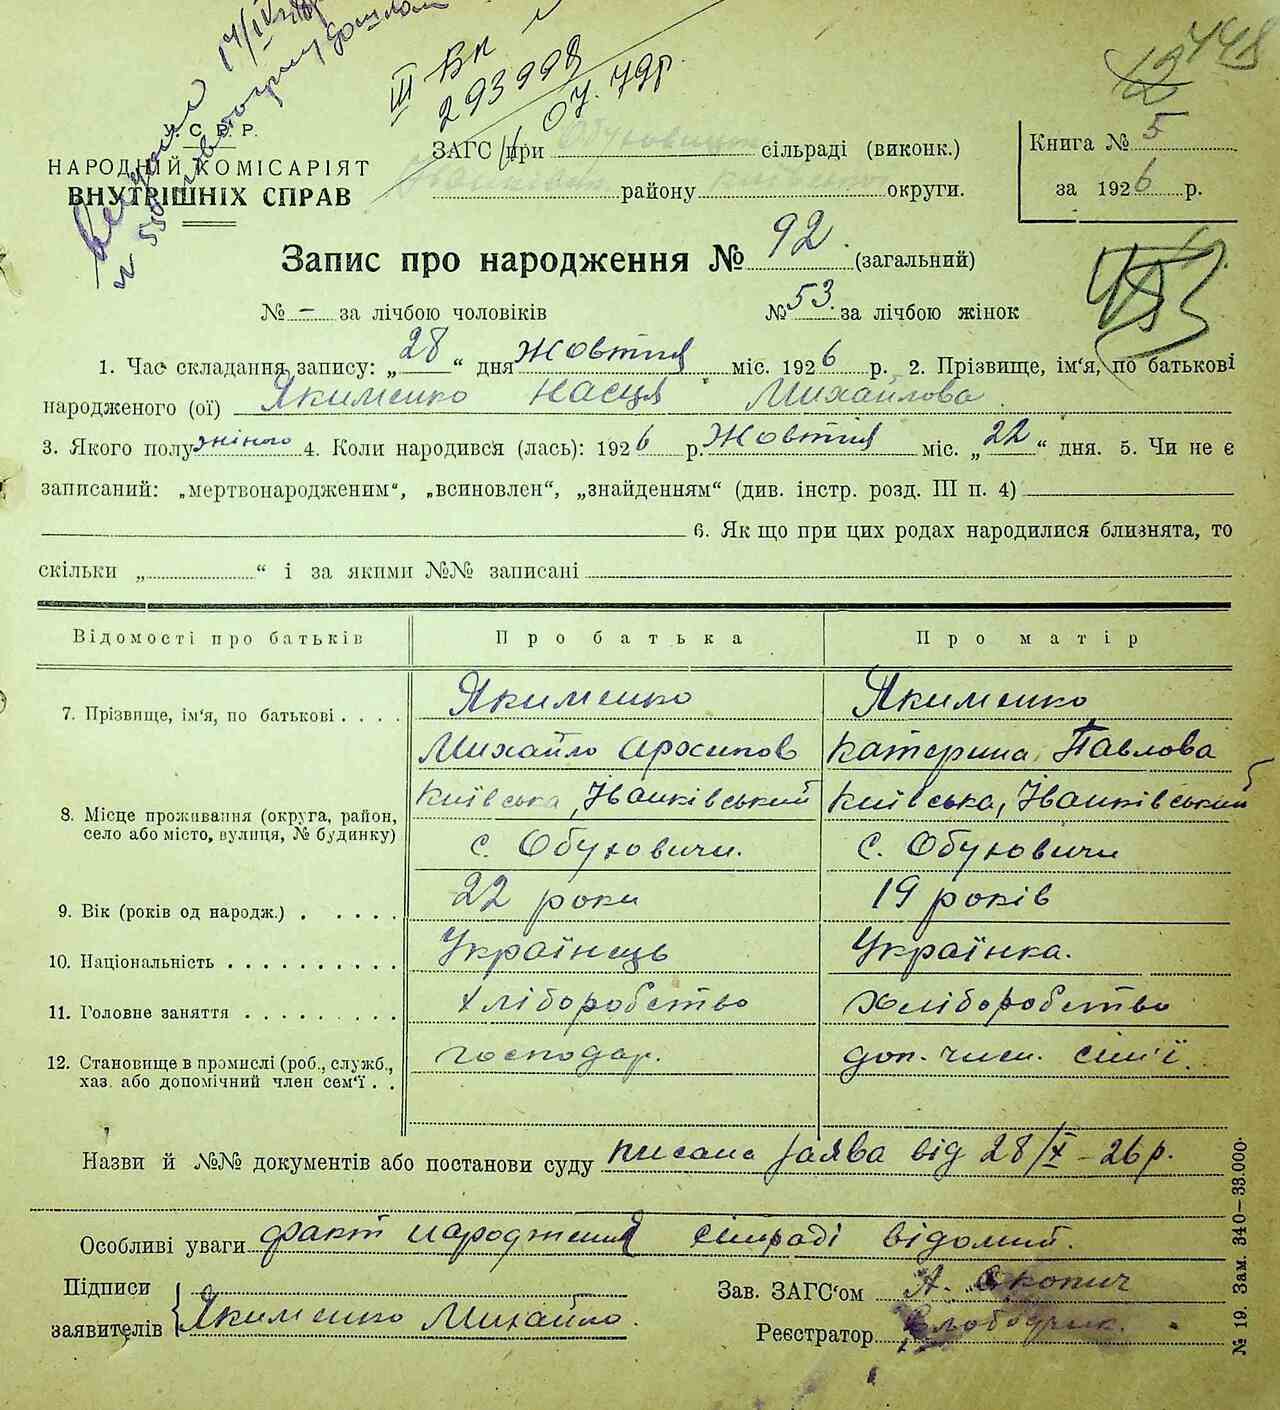 17/IV
ІІІ ВК
293998
07.79р.
12 448
У.С.Р.Р.
НАРОДНІЙ КОМІСАРІЯТ
ВНУТРІШНІХ СПРАВ
ЗАГС при сільраді (виконк.)
району округи.
Книга № 5
за 1926 р.
Запис про народження № 92. (загальний)
№ – за лічбою чоловіків № 53. за лічбою жінок
1. Час складання запису: „28“ дня Жовтня міс. 1926 р. 2. Прізвище, ім'я, по батькові
народженого (ої) Якименко Насця Михайлова.
3. Якого полу жіного 4. Коли народився (лась): 1926 р. Жовтня міс. „22“ дня. 5. Чи не є
записаний: „мертвонародженим“, „всиновлен“, „знайденням“ (див. інстр. розд. III п. 4)
6. Як що при цих родах народилися близнята, то
скільки „ “ і за якими №№ записані
Відомості про батьків Про батька Про матір
7. Прізвище, ім'я, по батькові Якименко Якименко
Михайло Архипов Катерина Павлова
8. Місце проживання (округа, район, село або місто, вулиця, № будинку) Київська, Іванківський Київська, Іванківський
с. Обуховичи. с. Обуховичи
9. Вік (років од народж.) 22 роки 19 років
10. Національність Українець Українка.
11. Головне заняття хліборобство хліборобство
12. Становище в промислі (роб., служб., хаз. або допомічний член сем'ї господар. доп. член. сім'ї.
Назви й №№ документів або постанови суду писана заява від 28/X – 26 р.
Особливі уваги факт народження сільраді відомий.
Підписи
заявителів Якименко Михайло.
Зав. ЗАГС'ом А. Скопич
Реєстратор
№ 19. Зам. 340–33.000.